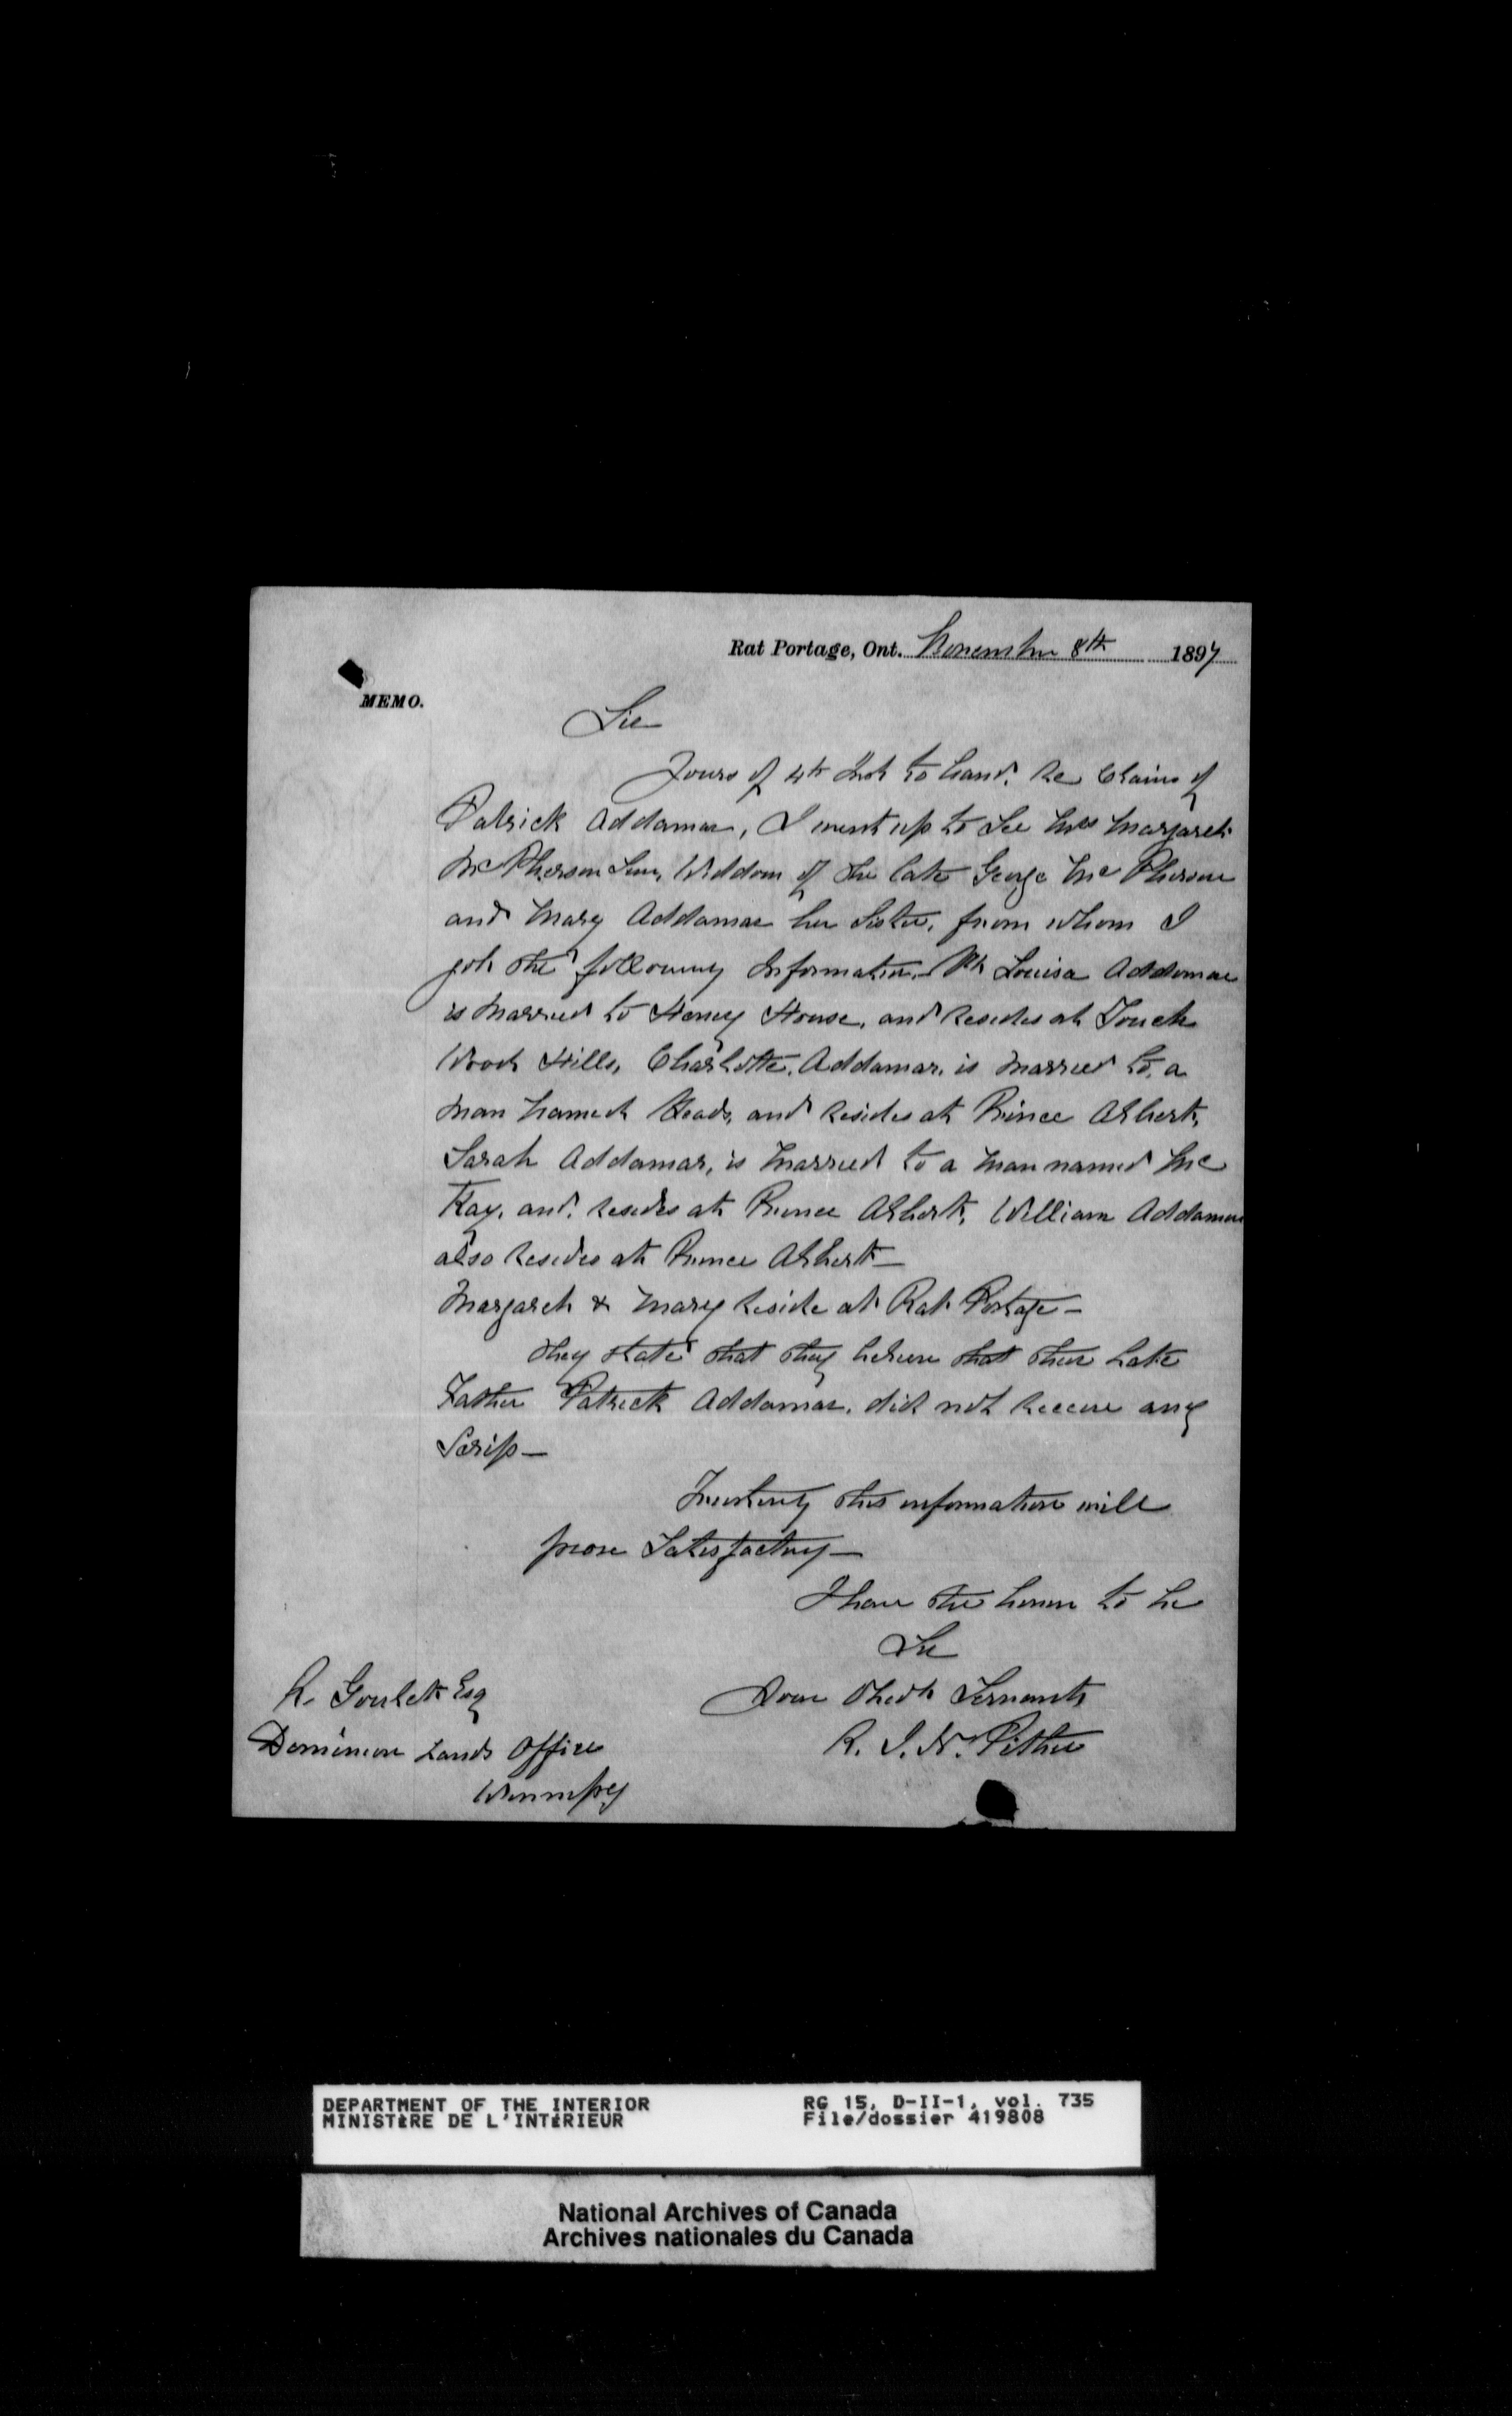 Rat Portage, Ont. November 8th 1897
MEMO.
Sir
Yours of 4th Inst to hand. Re Claim of
Patrick Addamar, I went up to See Mrs Margaret
McPherson Senr, Widdow of the late George McPherson
and Mary Addamar her Sister, from whom I
got the following Information. Louisa Addamar
is Married to Henry House, and Resides at Touch
Wood Hills, Charlotte Addamar, is Married to a
Man Named Heads, and Resides at Prince Albert,
Sarah Addamar, is Married to a Man named Mc
Kay, and Resides at Prince Albert, William Addamar
also Resides at Prince Albert—
Margaret & Mary Reside at Rat Portage—
They State that they believe that their Late
Father Patrick Addamar, did not Receive any
Scrip—
Trusting this information will
prove Satisfactory—
I have the honor to be
Sir
Your Obedt Servant
R. J. N. Pither
R. Goulet Esq
Dominion Lands Office
Winnipeg
DEPARTMENT OF THE INTERIOR RG 15, D-II-1, vol. 735
MINISTÈRE DE L'INTÉRIEUR File/dossier 419808
National Archives of Canada
Archives nationales du Canada